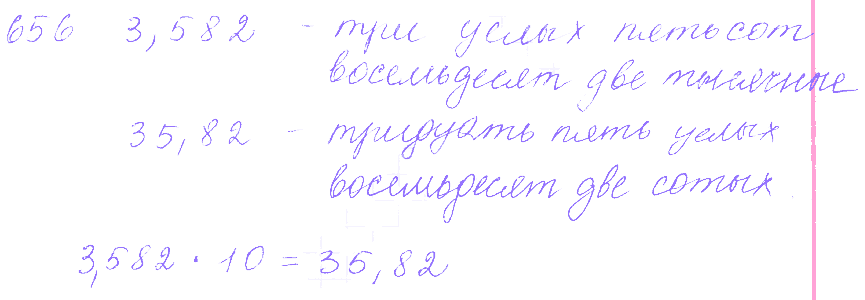 656 3,582 - три целых пятьсот
восемьдесят две тысячные
35,82 - тридцать пять целых
восемьдесят две сотых
3,582 · 10 = 35,82